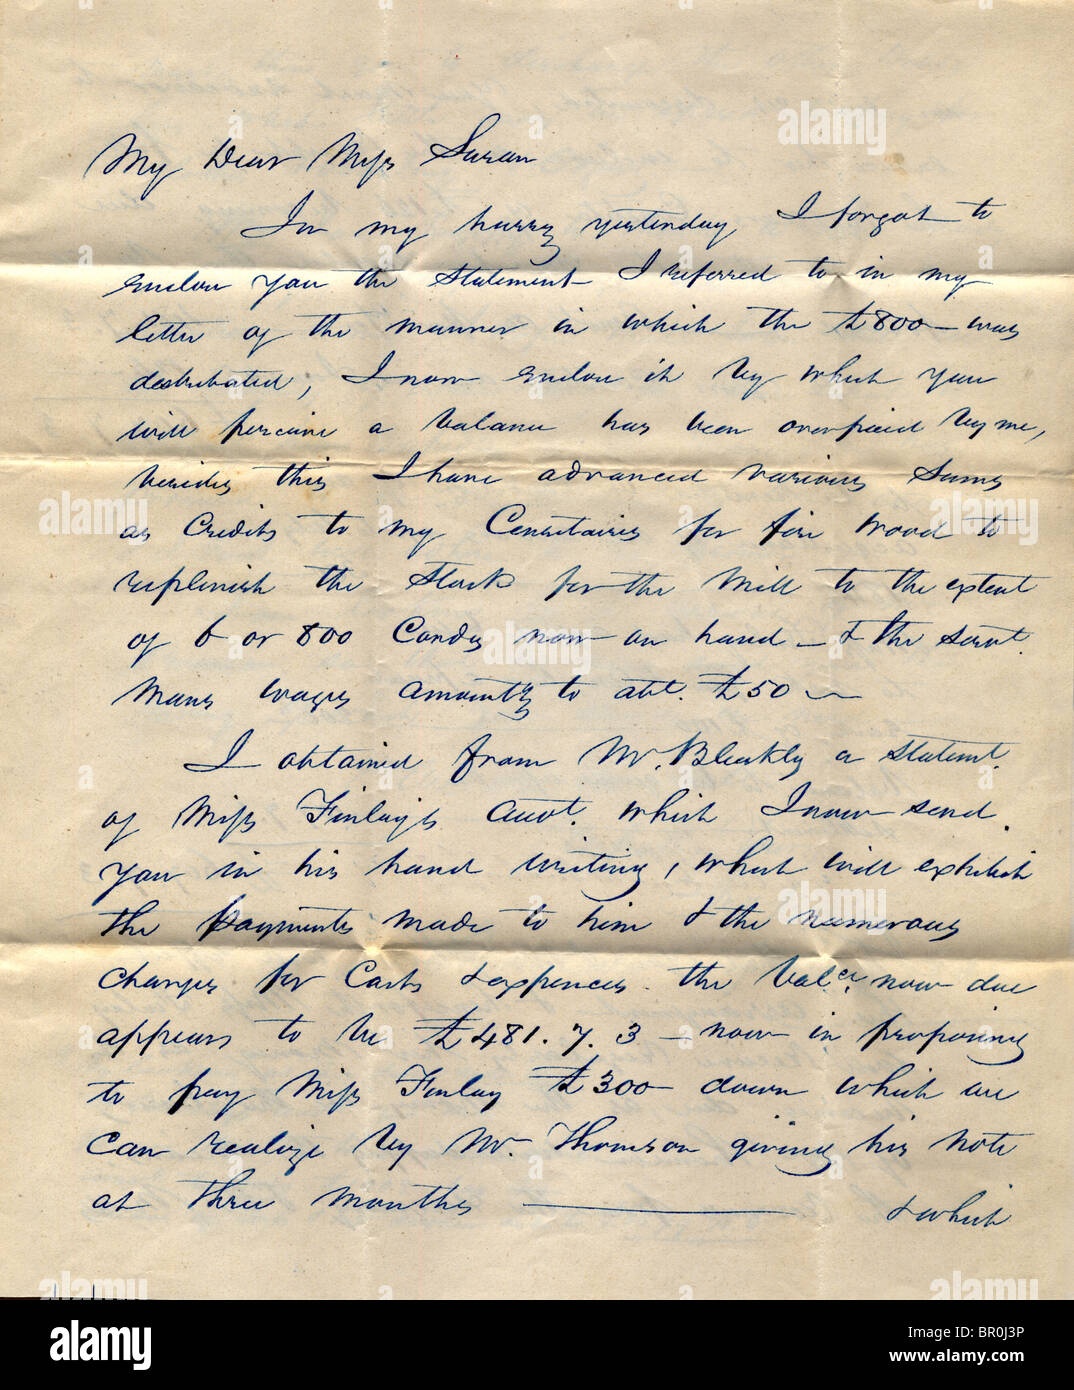 My Dear Miss Susan
In my hurry yesterday I forgot to
enclose you the Statement I referred to in my
letter of the manner in which the £800 — was
destributed; I now enclose it by which you
will perceive a balance has been overpaid by me,
besides this I have advanced various Sums
as Credits to my for fire wood to
replenish the Stock for the Mill to the extent
of 6 or 800 Cords now on hand — & the
Mans wages amountg to abt. £50 —
I obtained from Mr. Bleakly a Statemt.
of Miss Finlay's Accot. which I now send
you in his hand writing, which will exhibit
the payments made to him & the numerous
charges for Costs & expences. the Balce. now due
appears to be £481. 7. 3 — now in proposing
to pay Miss Finlay £300 — down which we
can realize by Mr. Thomson giving his Note
at three months — & which
alamy
BR0J3P
www.alamy.com